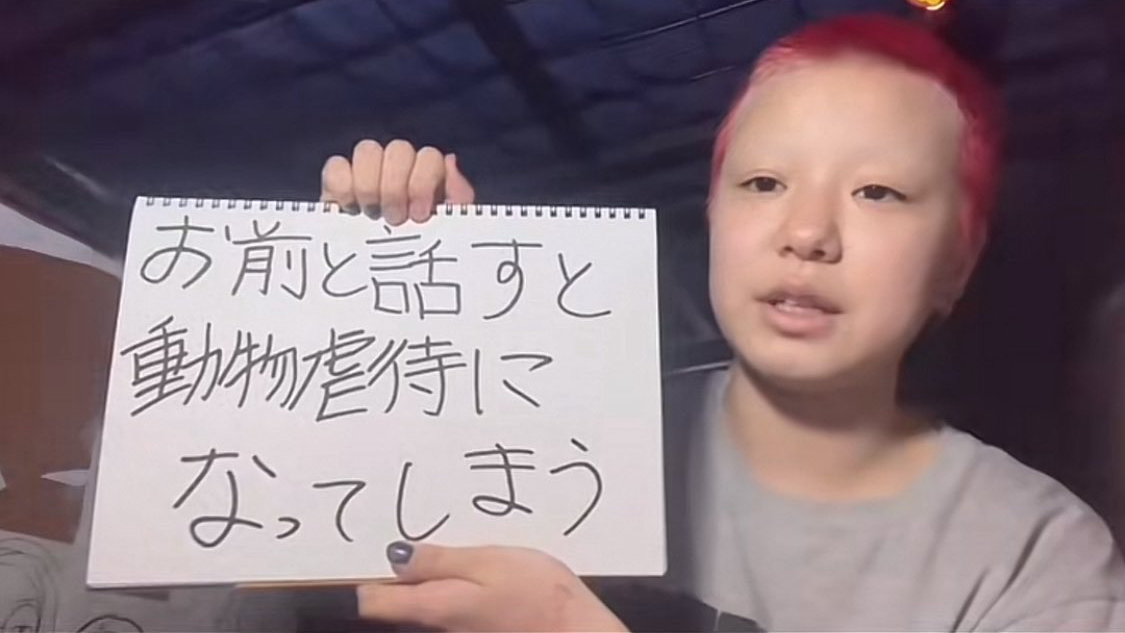 お前と話すと
動物虐待に
なってしまう